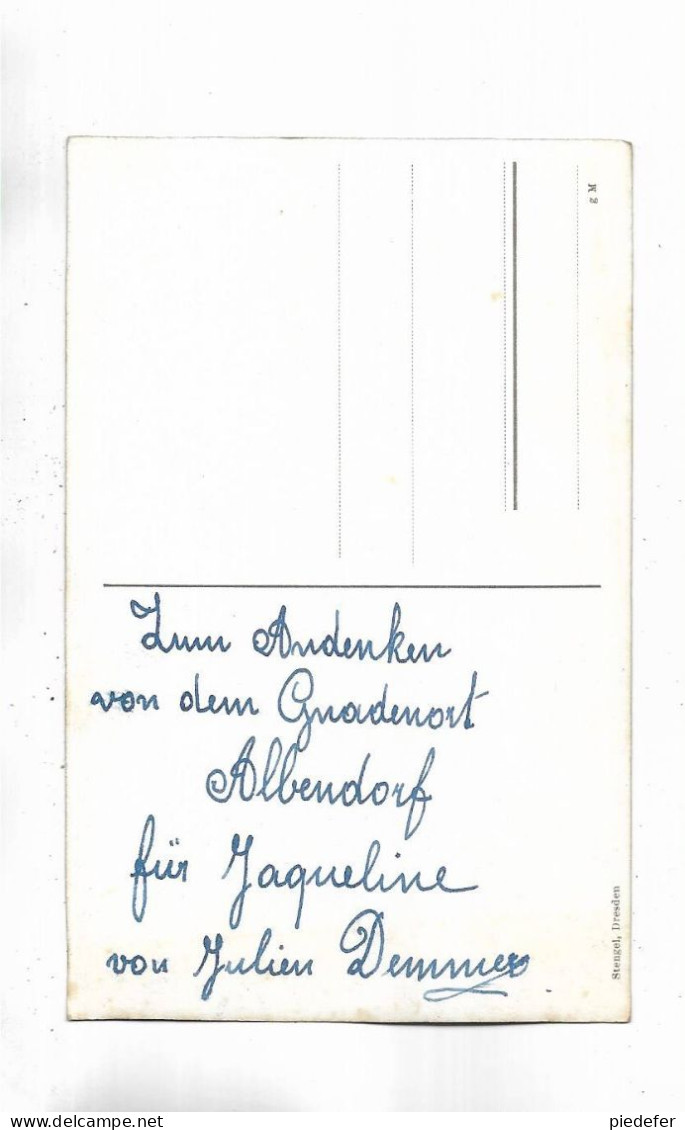 M 2
Zum Andenken
von dem Gnadenort
Albendorf
für Jaqueline
von Julien Demmer
Stengel, Dresden
piedefer